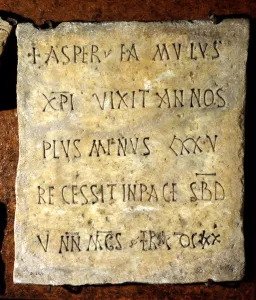 + ASPER FAMULUS
XPI VIXIT ANNOS
PLUS MENUS XXXV
RECESSIT IN PACE SBD
V NN MCS ERA DCXX